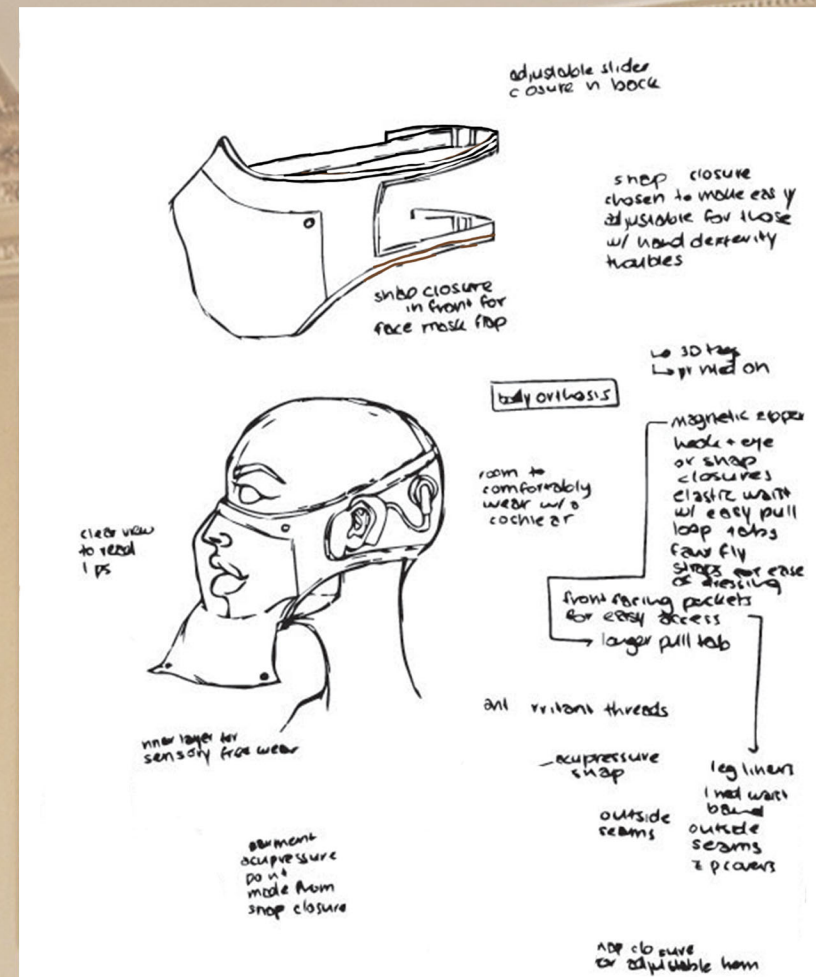 adjustable slider
closure in back
snap closure
chosen to make easy
adjustable for those
w/ hand dexterity
troubles
snap closure
in front for
face mask flap
↳ 3D tag
↳ printed on
body orthosis
magnetic zipper
hook + eye
or snap
closures
elastic waist
w/ easy pull
loop tabs
faux fly
straps for ease
of dressing
front facing pockets
for easy access
→ longer pull tab
room to
comfortably
wear w/ a
cochlear
clear view
to read
lips
anti irritant threads
inner layer for
sensory free wear
- acupressure
snap
leg liners
lined waist
band
outside
seams
outside
seams
zip covers
garment
acupressure
point
made from
snap closure
snap closure
for adjustable hem